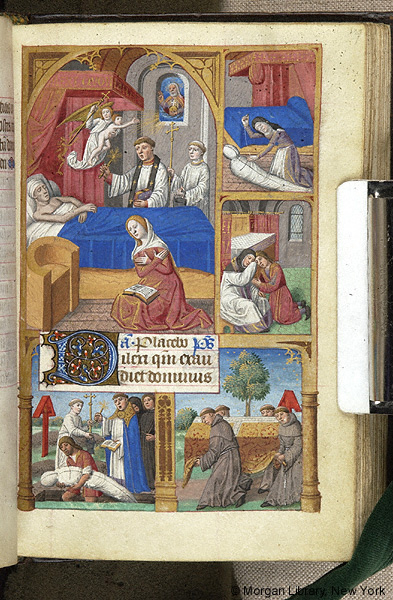 a. Placebo ps
Dilexi qm exau
diet dominus
© Morgan Library, New York